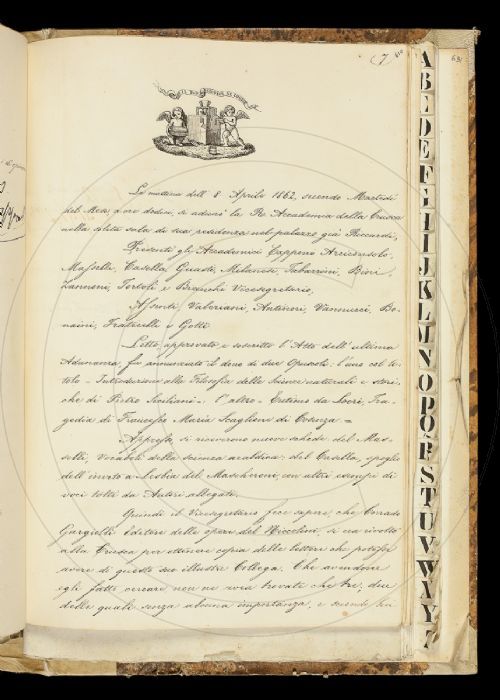 7
La mattina dell' 8 Aprile 1862, secondo Martedì
del Mese, a ore dodici, si adunò la R. Accademia della Crusca
nella solita sala di sua residenza nel palazzo già Riccardi,
Presenti gli Accademici Capponi, Arciconsolo,
Masselli, Casella, Guasti, Milanesi, Tabarrini, Bini,
Zannoni, Tortoli e Bianchi Vicesegretario.
Assenti, Valeriani, Antinori, Vannucci, Bo-
naini, Fraticelli e Gotti.
Letto, approvato e soscritto l'Atto dell'ultima
Adunanza, fu annunziato il dono di due Opuscoli: l'uno col ti-
tolo = Introduzione alla Filosofia delle Scienze naturali e stori-
che di Pietro Siciliani =. l'altro = Eutimo da Locri, Tra-
gedia di Francesco Maria Scaglione di Cosenza =
Appresso, si riceverono nuove schede del Mas-
selli, Vocaboli della scienza araldica: del Casella, spogli
dell'invito a Lesbia del Mascheroni, con altri esempi di
voci tolti da Autori allegati.
Quindi il Vicesegretario fece sapere che Corrado
Gargiolli Editore delle opere del Niccolini, si era rivolto
alla Crusca per ottenere copia delle lettere che potesse
avere di questo suo illustre Collega. Che avendone
egli fatte cercare non ne avea trovate che tre, due
delle quali senza alcuna importanza, e
A
B
C
D
E
F
G
H
I
J
K
L
M
N
O
P
Q
R
S
T
U
V
W
X
Y
Z